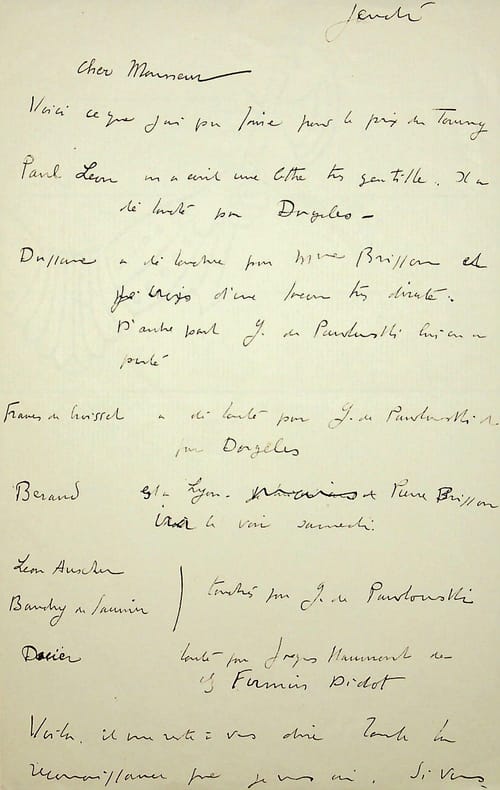 Jeudi
Cher Monsieur
Voici ce que j'ai pu faire pour le prix du Touring
Paul Léon m'a écrit une lettre très gentille. Il a
été touché par Dorgeles -
Dussane a été touchée par Mme Brisson et
je crois d'une façon très directe.
D'autre part G. de Pawlowski lui en a
parlé
Francis de Croisset a été touché par G. de Pawlowski et
par Dorgeles
Beraud est à Lyon. Pierre Brisson
ira le voir samedi.
Leon Auscher
Baudry de Saunier
touchés par G. de Pawlowski
touché par Jacques Hammont de
Firmin Didot
Voila, il me reste à vous dire toute la
reconnaissance que je vous ai. Si vous